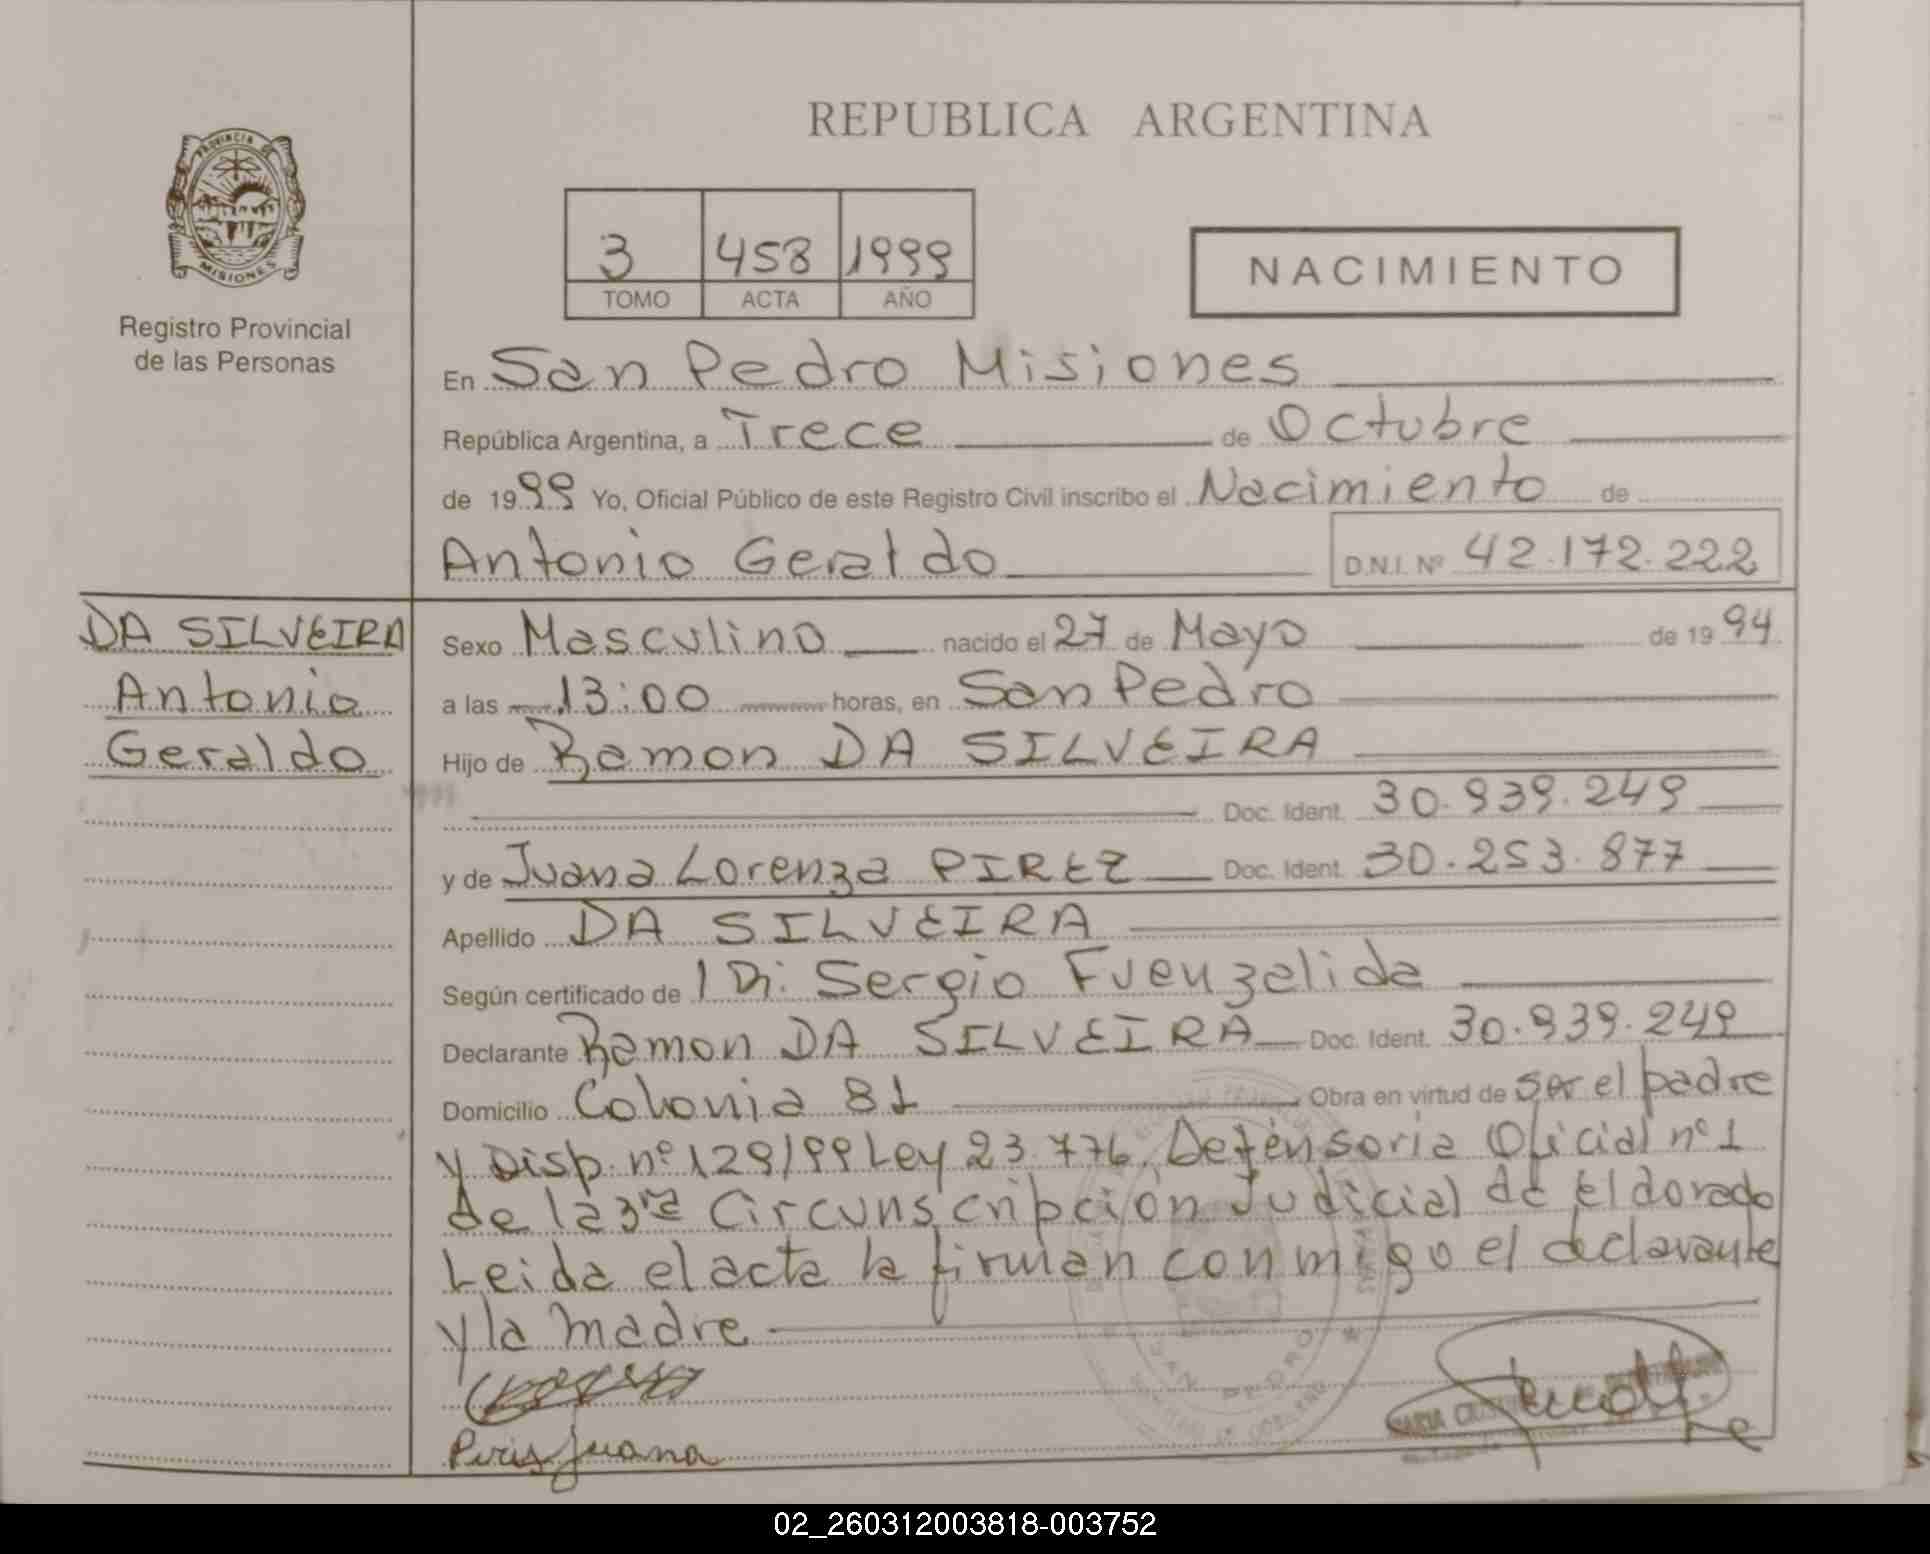 REPUBLICA ARGENTINA
PROVINCIA DE
MISIONES
Registro Provincial
de las Personas
3 458 1999
TOMO ACTA AÑO
NACIMIENTO
En San Pedro Misiones
República Argentina, a Trece de Octubre
de 1999 Yo, Oficial Público de este Registro Civil inscribo el Nacimiento de
Antonio Geraldo D.N.I. Nº 42.172.222
DA SILVEIRA
Antonio
Geraldo
Sexo Masculino nacido el 27 de Mayo de 1994
a las 13:00 horas, en San Pedro
Hijo de Ramon DA SILVEIRA
Doc. Ident. 30.939.249
y de Juana Lorenza PIREZ Doc. Ident. 30.253.877
Apellido DA SILVEIRA
Según certificado de Sergio Fuenzalida
Declarante Ramon DA SILVEIRA Doc. Ident. 30.939.249
Domicilio Colonia 81 Obra en virtud de ser el padre
y Disp. nº 129/99 Ley 23.776. Defensoria Oficial nº 1
de la 3ra Circunscripción Judicial de Eldorado
Leida el acta la firman conmigo el declarante
y la madre
SAN PEDRO
Piris Juana
02_260312003818-003752